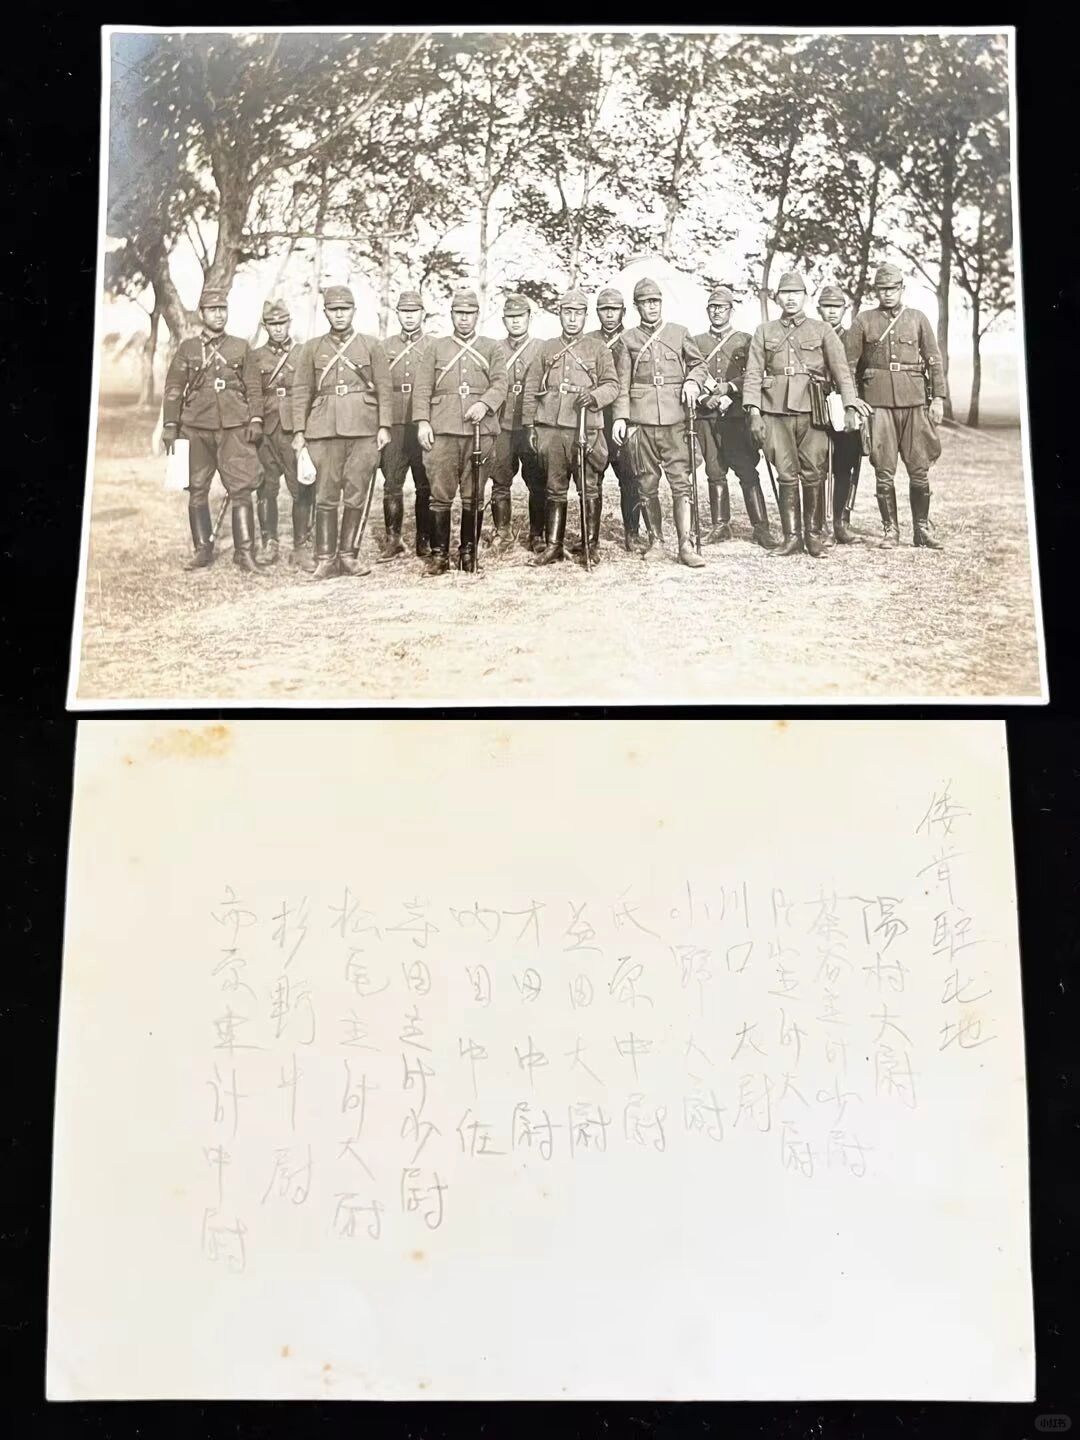 駐屯地
陽村大尉
茶谷主計少尉
主計大尉
川口大尉
小野大尉
氏原中尉
益田大尉
才田中尉
田中佐
寺田主計少尉
松尾主計大尉
杉野中尉
主計中尉
小红书